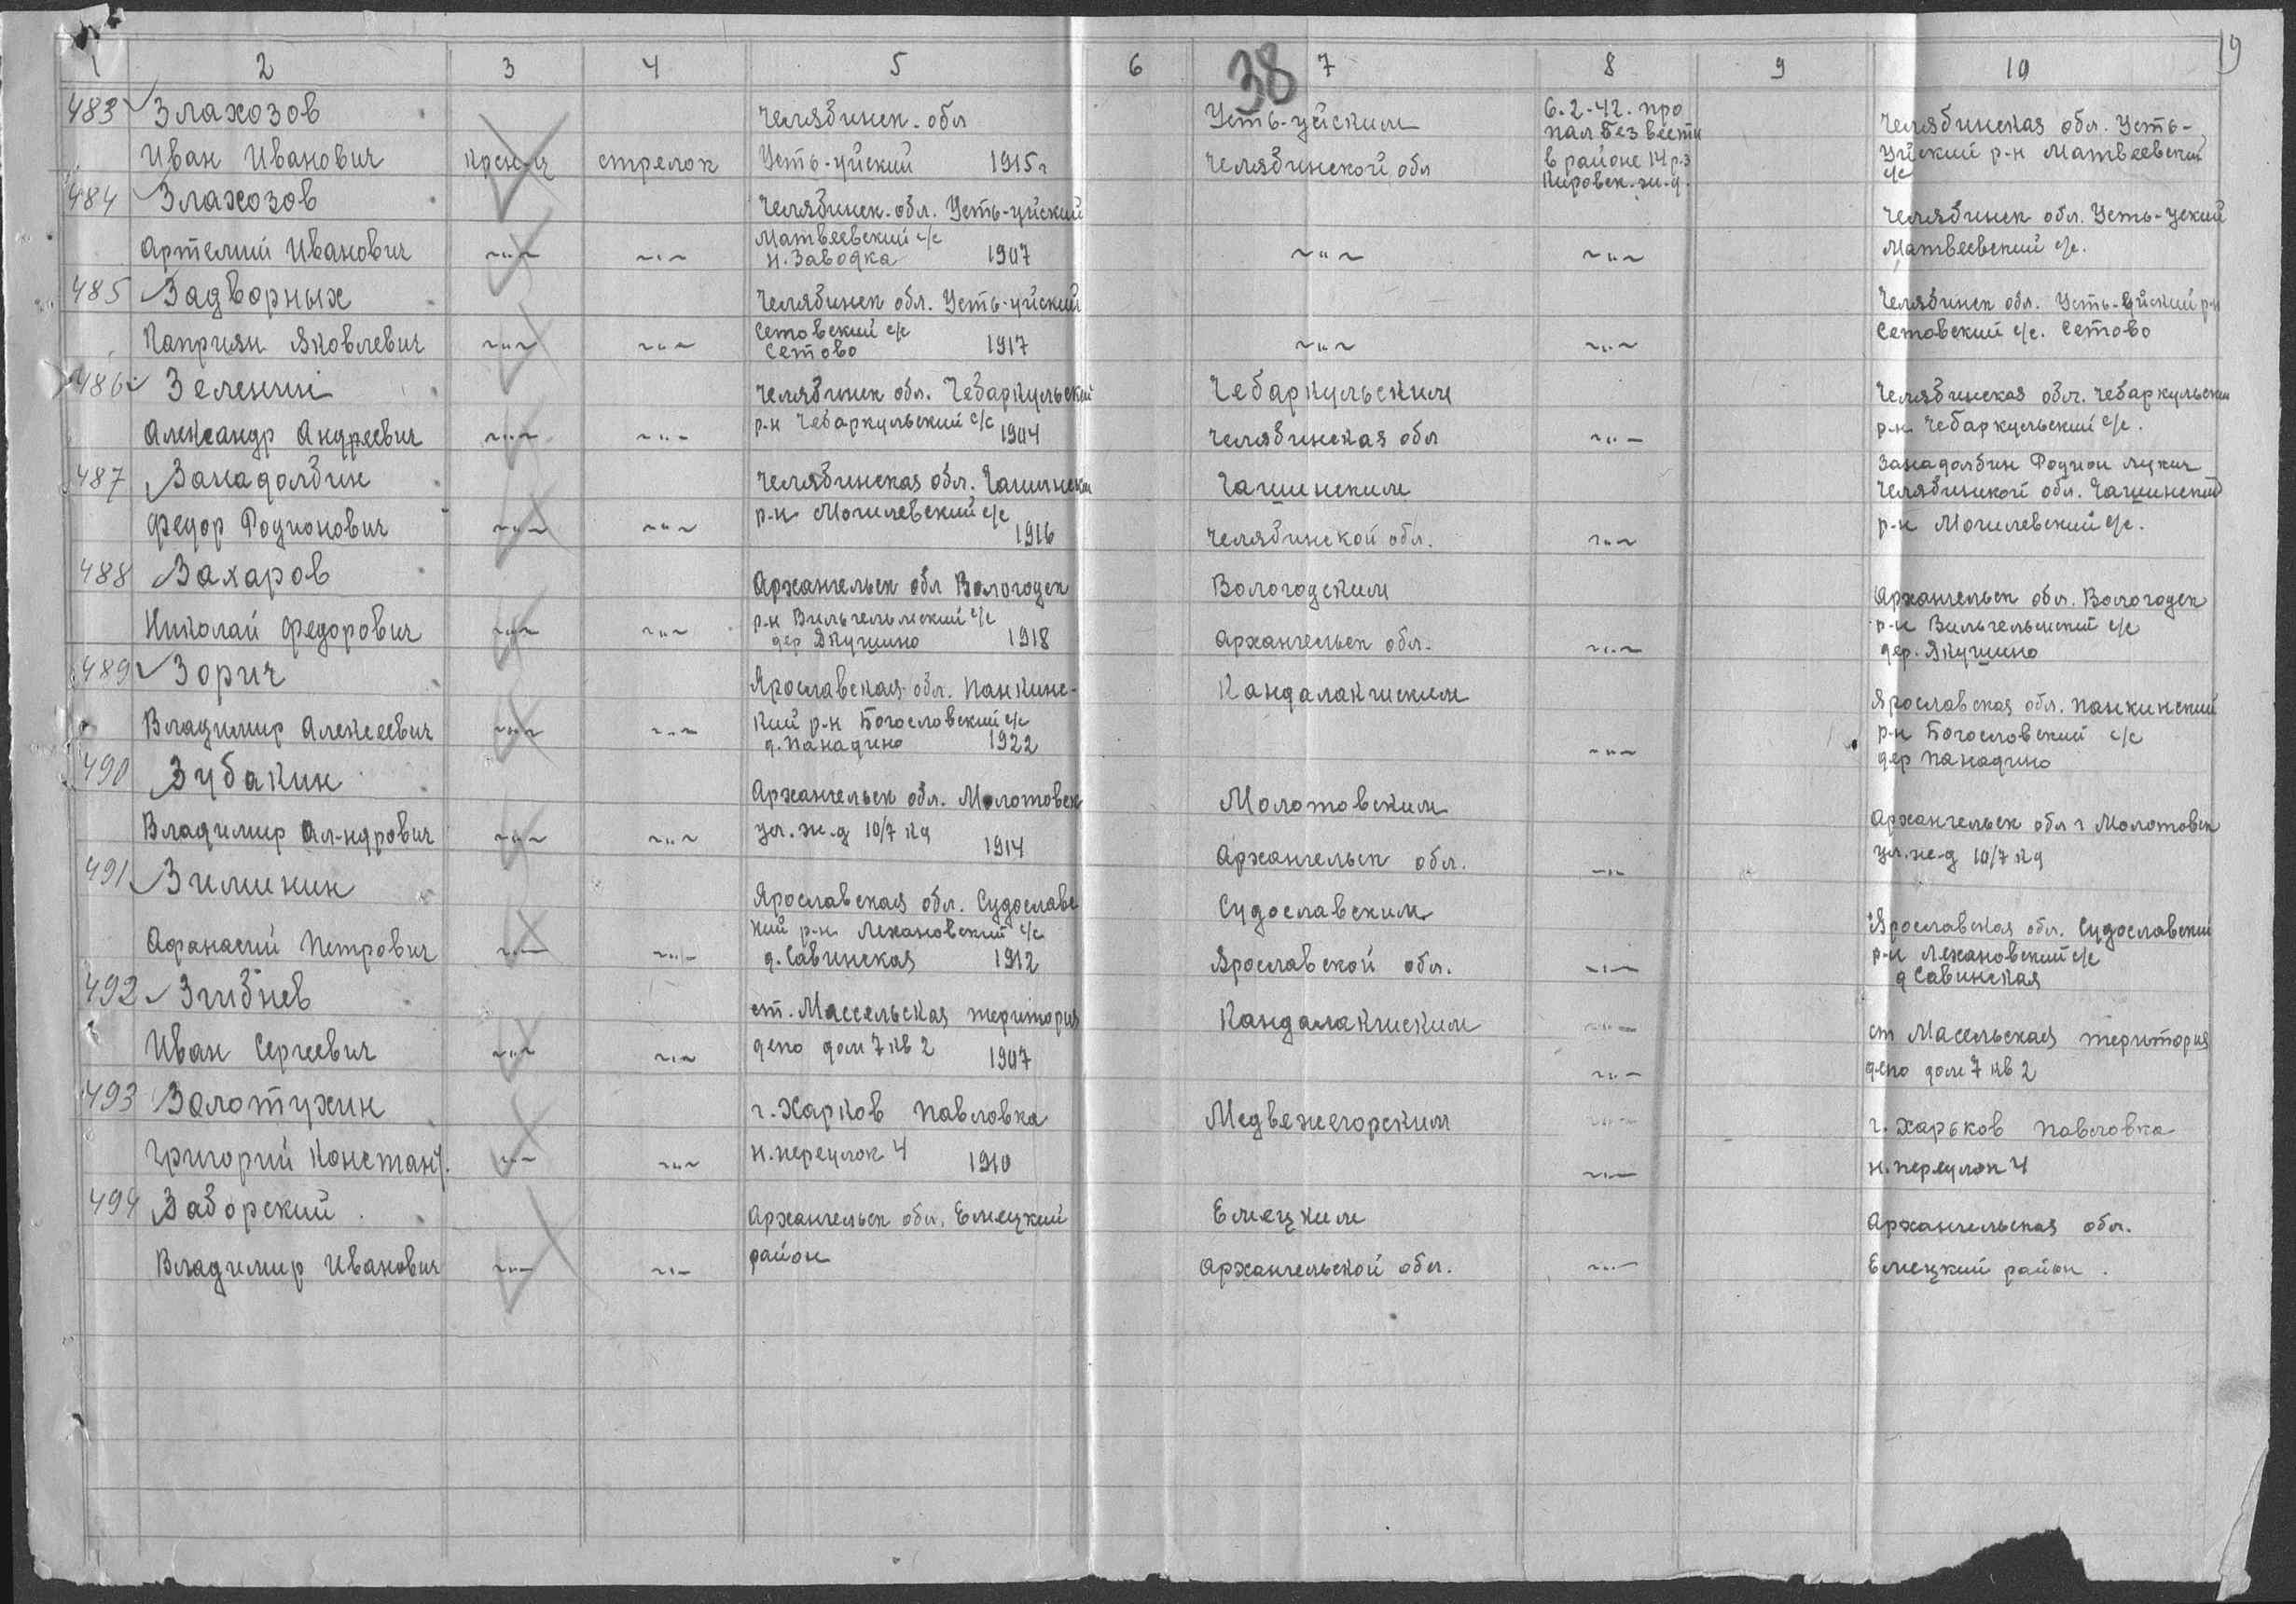 19
38
1 2 3 4 5 6 7 8 9 10
483 Злахозов Челябинск. обл Усть-уйским 6.2-42. про Челябинская обл. Усть-
пал без вести
Иван Иванович кр-ен-ц стрелок Усть-уйский 1915г Челябинской обл в районе 14 р-з Уйский р-н Матвеевский
Кировск. ж.д. с/с
484 Злахозов Челябинск. обл. Усть-уйский Челябинск обл. Усть-уский
Матвеевский с/с
Артемий Иванович ~"~ ~"~ н. Заводка 1907 ~"~ ~"~ Матвеевский с/с.
485 Задворных Челябинск обл. Усть-уйский Челябинск обл. Усть-уйский р-н
Сетовский с/с
Каприян Яковлевич ~"~ ~"~ Сетово 1917 ~"~ ~"~ Сетовский с/с. Сетово
486 Зеленин Челябинск обл. Чебаркульский Чебаркульским Челябинская обл. Чебаркульский
Александр Андреевич ~"~ ~"~ р-н Чебаркульский с/с 1904 Челябинская обл ~"~ р-н Чебаркульский с/с.
Занадолбин Родион Лукич
487 Занадолбин Челябинская обл. Чашинский Чашинским Челябинской обл. Чашинский
Федор Родионович ~"~ ~"~ р-н Могилевский с/с 1916 Челябинской обл. ~"~ р-н Могилевский с/с.
488 Захаров Архангельск обл Вологодск Вологодским Архангельск обл. Вологодск
р-н Вильгельмский с/с р-н Вильгельмский с/с
Николай Федорович ~"~ ~"~ дер Якушино 1918 Архангельск обл. ~"~ дер. Якушино
489 Зорич Ярославская обл. Панкинс- Кандалакшским Ярославская обл. Панкинский
кий р-н Богословский с/с р-н Богословский с/с
Владимир Алексеевич ~"~ ~"~ д. Панадино 1922 ~"~ дер Панадино
490 Зубакин Архангельск обл. Молотовск Молотовским Архангельск обл г Молотовск
Владимир Ал-ндрович ~"~ ~"~ ул. ж-д 10/7 кв 1914 Архангельск обл. ~"~ ул. ж-д 10/7 кв
491 Зиминин Ярославская обл. Судославс Судославским Ярославская обл. Судославский
кий р-н Лекановский с/с р-н Лекановский с/с
Афанасий Петрович ~"~ ~"~ д. Савинская 1912 Ярославской обл. ~"~ д Савинская
492 Згибнев ст. Массельская територия Кандалакшским ~"~ ст Масельская територия
Иван Сергеевич ~"~ ~"~ депо дом 7 кв 2 1907 ~"~ депо дом 7 кв 2
493 Золотухин г. Харков Павловка Медвежегорским ~"~ г. Харьков Павловка
Григорий Констант. ~"~ ~"~ н. переулок 4 1910 ~"~ н. переулок 4
494 Заборский Архангельск обл. Емецкий Емецким Архангельская обл.
Владимир Иванович ~"~ ~"~ район Архангельской обл. ~"~ Емецкий район.